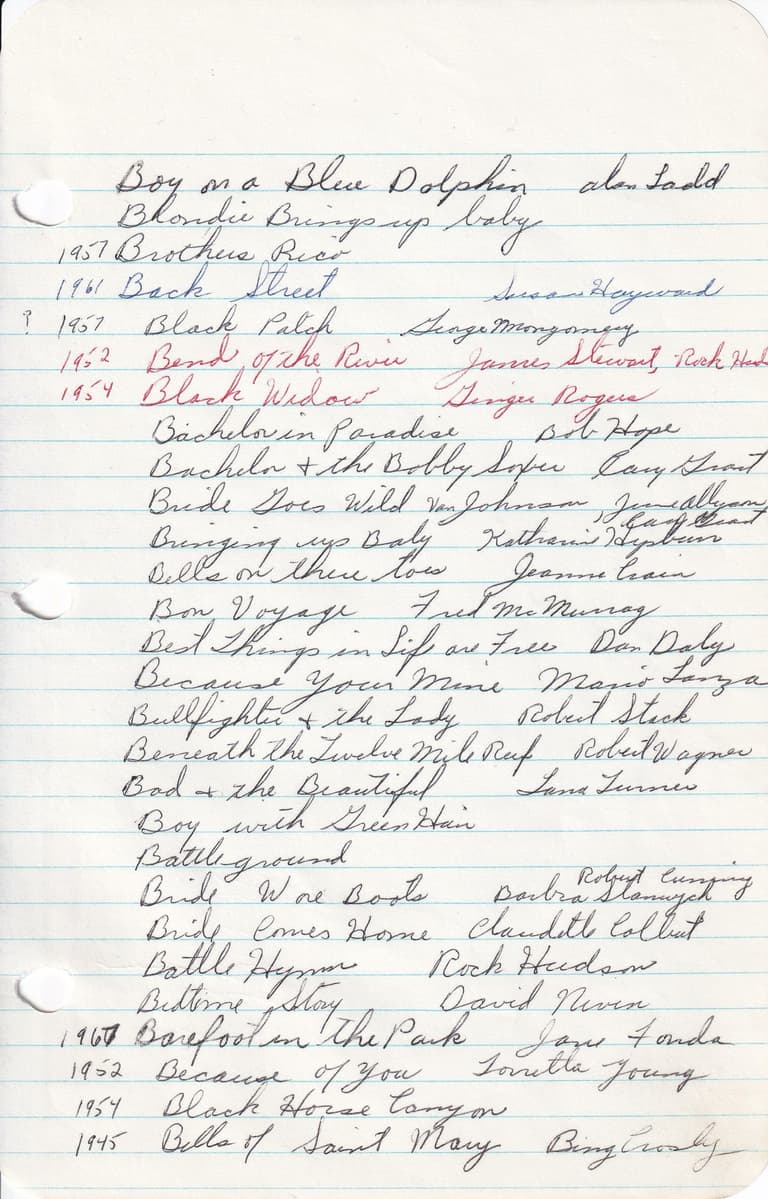 Boy on a Blue Dolphin alan Ladd
Blondie Brings up baby
1957 Brothers Rico
1961 Back Street Susan Hayward
? 1957 Black Patch George Mongomery
1952 Bend of the River James Stewart, Rock Hud
1954 Black Widow Ginger Rogers
Bachelor in Paradise Bob Hope
Bachelor + the Bobby Soxer Cary Grant
Bride Goes Wild Van Johnson June allyson
Cary Grant
Bringing up Baby Katharine Hepburn
Bells on there toes Jeanne Crain
Bon Voyage Fred McMurray
Best Things in Life are Free Dan Daly
Because Your Mine Mario Lanza
Bullfighter + the Lady Robert Stack
Beneath the Twelve Mile Reef Robert Wagner
Bad + the Beautiful Lana Turner
Boy with Green Hair
Battleground
Robert Cumming
Bride Wore Boots Barbra Stanwyck
Bride Comes Home Claudette Colbert
Battle Hymn Rock Hudson
Bedtime Story David Niven
1967 Barefoot in the Park Jane Fonda
1952 Because of You Lorretta Young
1954 Black Horse Canyon
1945 Bells of Saint Mary Bing Crosby